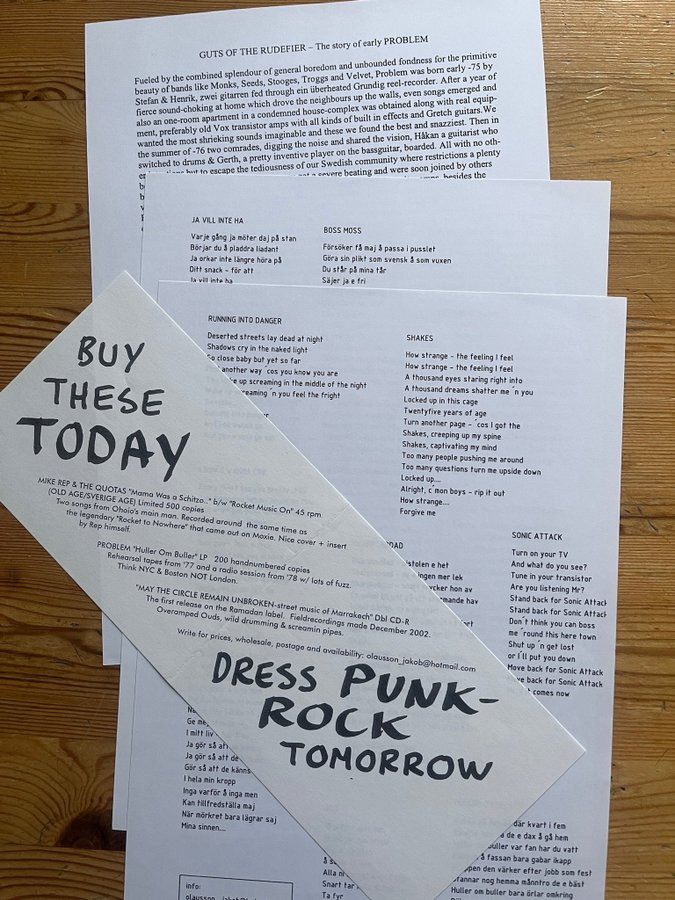 GUTS OF THE RUDEFIER – The story of early PROBLEM
Fueled by the combined splendour of general boredom and unbounded fondness for the primitive
beauty of bands like Monks, Seeds, Stooges, Troggs and Velvet, Problem was born early -75 by
Stefan & Henrik, zwei gitarren fed through ein überheated Grundig reel-recorder. After a year of
fierce sound-choking at home which drove the neighbours up the walls, even songs emerged and
also an one-room apartment in a condemned house-complex was obtained along with real equip-
ment, preferably old Vox transistor amps with all kinds of built in effects and Gretch guitars.We
wanted the most shrieking sounds imaginable and these we found the best and snazziest. Then in
the summer of -76 two comrades, digging the noise and shared the vision, Håkan a guitarist who
switched to drums & Gerth, a pretty inventive player on the bassguitar, boarded. All with no oth-
but to escape the tediousness of our Swedish community where restrictions a plenty
a severe beating and were soon joined by others
besides the
JA VILL INTE HA
Varje gång ja möter daj på stan
Börjar du å pladdra liadant
Ja orkar inte längre höra på
Ditt snack - för att
Ja vill inte ha
BOSS MOSS
Försöker få maj å passa i pusslet
Göra sin plikt som svensk å som vuxen
Du står på mina tår
Säjer ja e fri
RUNNING INTO DANGER
Deserted streets lay dead at night
Shadows cry in the naked light
So close baby but yet so far
another way ´cos you know you are
up screaming in the middle of the night
screaming ´n you feel the fright
SHAKES
How strange - the feeling I feel
How strange - the feeling I feel
A thousand eyes staring right into
A thousand dreams shatter me ´n you
Locked up in this cage
Twentyfive years of age
Turn another page - ´cos I got the
Shakes, creeping up my spine
Shakes, captivating my mind
Too many people pushing me around
Too many questions turn me upside down
Locked up....
Alright, c´mon boys - rip it out
How strange....
Forgive me
BUY
THESE
TODAY
MIKE REP & THE QUOTAS "Mama Was a Schitzo..." b/w "Rocket Music On" 45 rpm
(OLD AGE/SVERIGE AGE) Limited 500 copies
Two songs from Ohoio's main man. Recorded around the same time as
the legendary "Rocket to Nowhere" that came out on Moxie. Nice cover + insert
by Rep himself.
PROBLEM "Huller Om Buller" LP 200 handnumbered copies
Rehearsal tapes from '77 and a radio session from '78 w/ lots of fuzz.
Think NYC & Boston NOT London.
"MAY THE CIRCLE REMAIN UNBROKEN-street music of Marrakech" Dbl CD-R
The first release on the Ramadan label. Fieldrecordings made December 2002.
Overamped Ouds, wild drumming & screamin pipes.
Write for prices, wholesale, postage and availability: olausson_jakob@hotmail.com
DRESS PUNK-
ROCK
TOMORROW
OAD
istolen e het
ingen mer lek
ycker hon av
ommande hav
SONIC ATTACK
Turn on your TV
And what do you see?
Tune in your transistor
Are you listening Mr?
Stand back for Sonic Attack
Stand back for Sonic Attack
Don´t think you can boss
me ´round this here town
Shut up ´n get lost
or I´ll put you down
Move back for Sonic Attack
back for Sonic Attack
comes now
Ge me
I mitt liv
Ja gör så att
Ja gör så att de
Gör så att de känns
I hela min kropp
Inga varför å inga men
Kan tillfredställa maj
När mörkret bara lägrar saj
Mina sinnen...
å s
Alla ni
Snart tar
Ta fyr
där kvart i fem
a de e dax å gå hem
buller var fan har du vatt
å fassan bara gabar ikapp
den värker efter jobb som fest
nog hemma månntro de e bäst
Huller om buller bara örlar omkring
info: